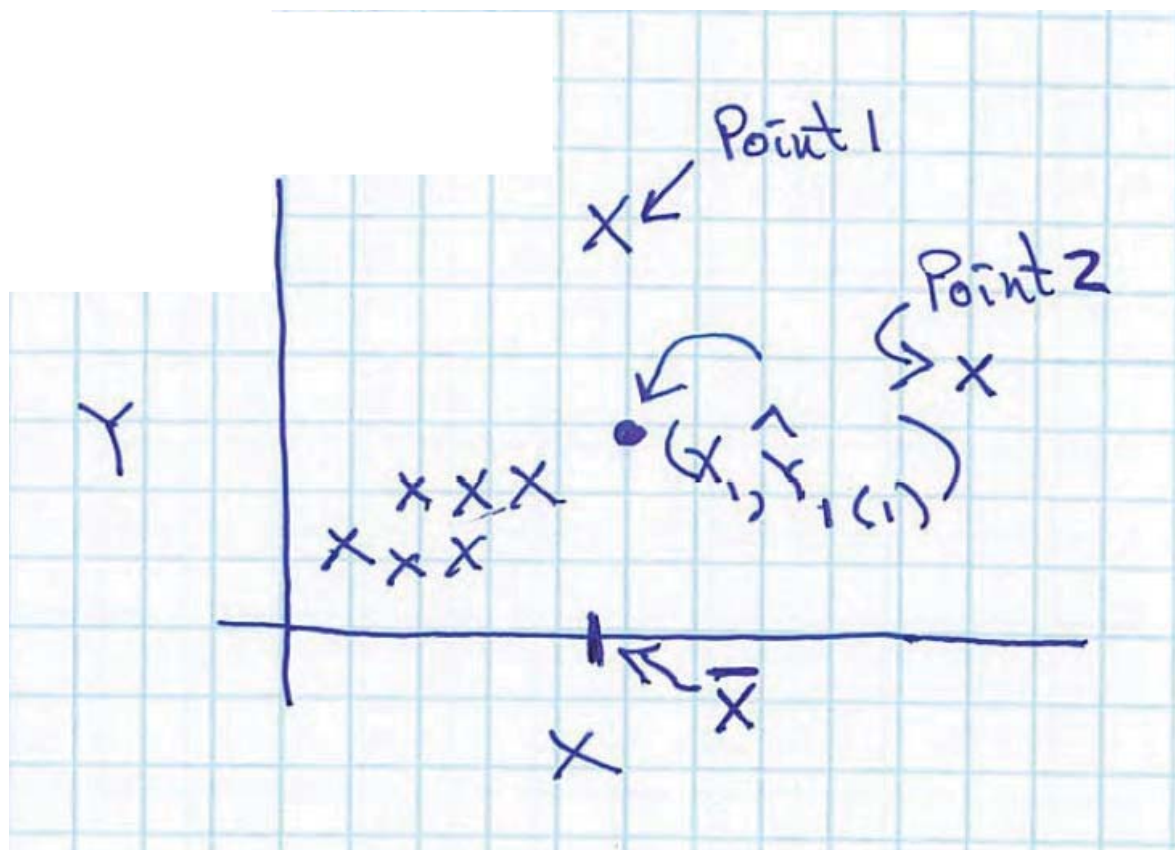 Point 1
Point 2
Y
(X₁, Ŷ₁₍₁₎)
X̄
X